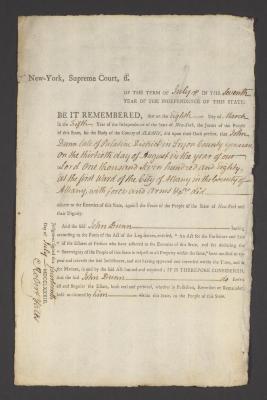 New-York, Supreme Court, ss.
OF THE TERM OF July in the Seventh
YEAR OF THE INDEPENDENCE OF THIS STATE.
BE IT REMEMBERED, that on the Eighth Day of March
In the Fifth Year of the Independence of the State of New-York, the Jurors of the People
of this State, for the Body of the County of ALBANY, did upon their Oath present, that John
Dunn late of Palatine District in Tryon County yeoman
on the thirtieth day of August in the year of our
Lord One thousand seven hundred and eighty,
at the first Ward of the City of Albany in the County of
Albany, with force and Arms &c. did
adhere to the Enemies of this State, against the Peace of the People of the State of New-York and
their Dignity.
And the said John Dunn having
according to the Form of the Act of the Legislature, entitled, "An Act for the Forfeiture and Sale
"of the Estates of Persons who have adhered to the Enemies of this State, and for declaring the
"Sovereignty of the People of this State in respect to all Property within the same," been notified to appear
and traverse the said Indictment, and not having appeared and traversed within the Time, and in
the Manner, in and by the said Act limited and required; IT IS THEREFORE CONSIDERED,
that the said John Dunn do forfeit
all and singular the Estate, both real and personal, whether in Possession, Reversion or Remainder,
held or claimed by him within this State, to the People of this State.
Judgment signed this fourteenth
Day of July MDCCLXXXIII